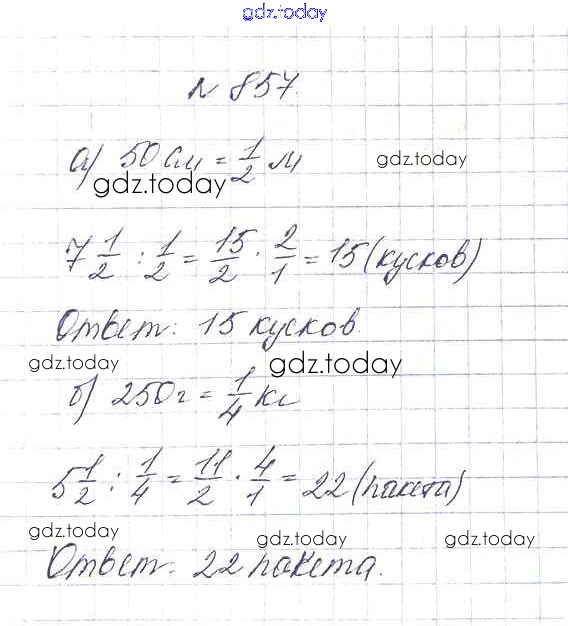 gdz.today
№ 857.
а) 50 см = 1/2 м
gdz.today
gdz.today
7 1/2 : 1/2 = 15/2 · 2/1 = 15 (кусков)
Ответ: 15 кусков.
gdz.today
gdz.today
б) 250 г = 1/4 кг
5 1/2 : 1/4 = 11/2 · 4/1 = 22 (пакета)
gdz.today
gdz.today
gdz.today
Ответ: 22 пакета.